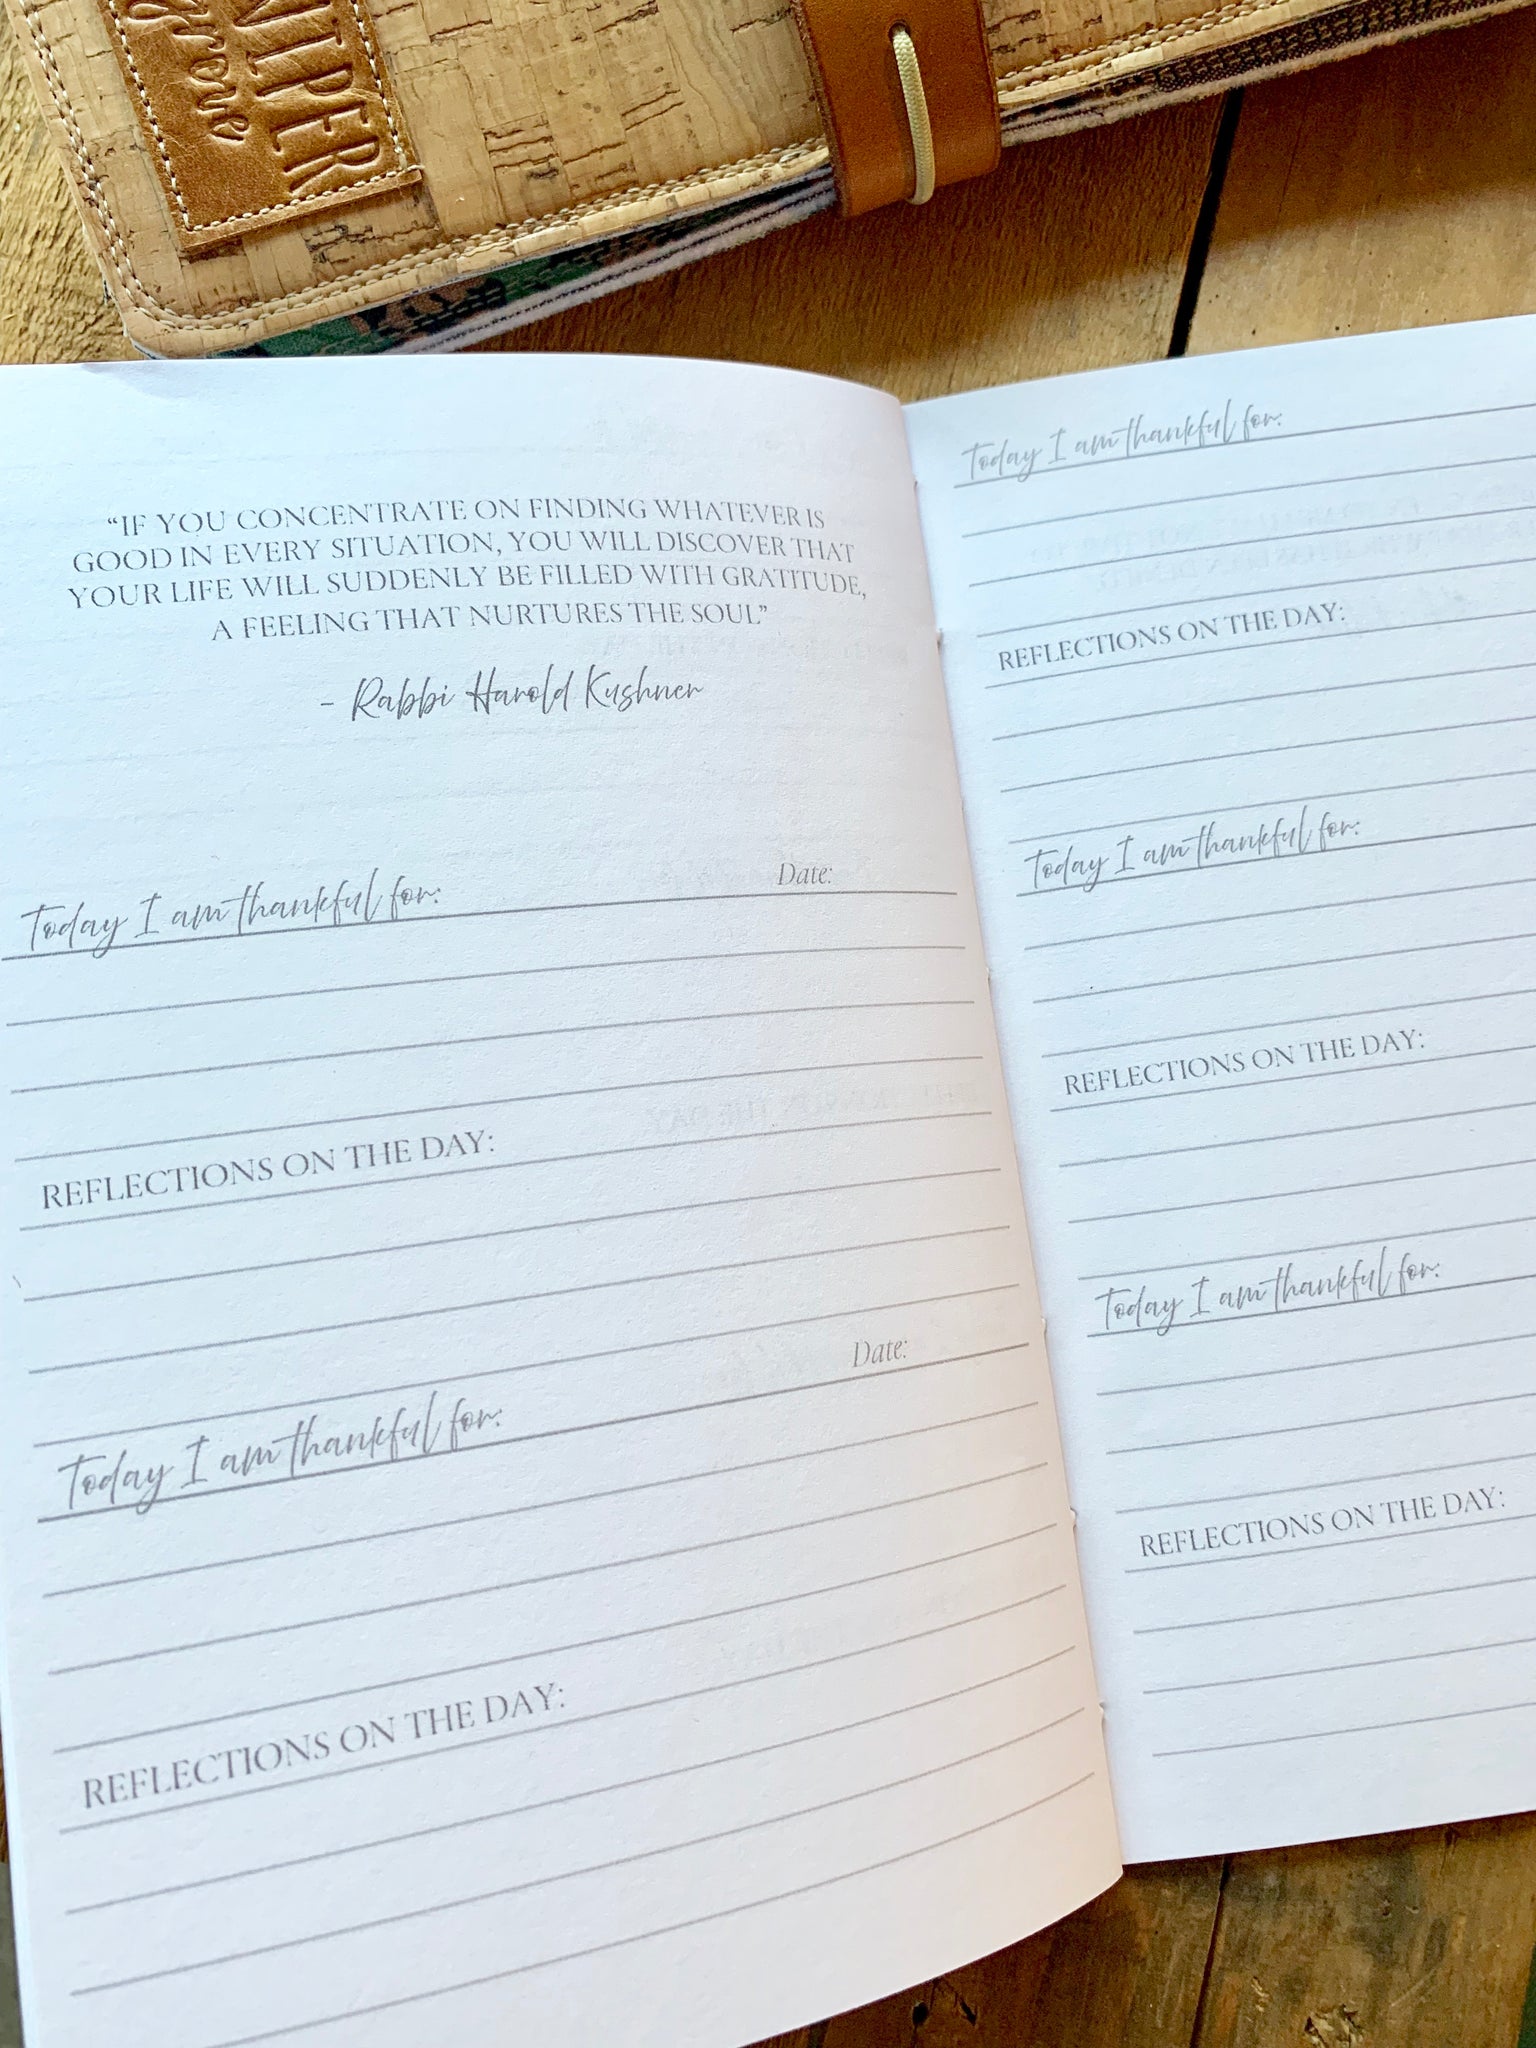 "IF YOU CONCENTRATE ON FINDING WHATEVER IS
GOOD IN EVERY SITUATION, YOU WILL DISCOVER THAT
YOUR LIFE WILL SUDDENLY BE FILLED WITH GRATITUDE,
A FEELING THAT NURTURES THE SOUL"
- Rabbi Harold Kushner
Today I am thankful for: Date:
REFLECTIONS ON THE DAY:
Today I am thankful for: Date:
REFLECTIONS ON THE DAY:
Today I am thankful for:
REFLECTIONS ON THE DAY:
Today I am thankful for:
REFLECTIONS ON THE DAY:
Today I am thankful for:
REFLECTIONS ON THE DAY: